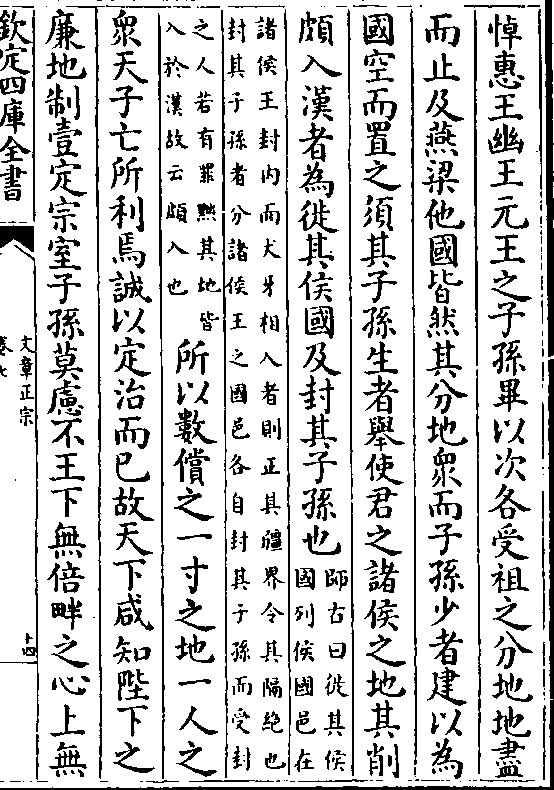 悼惠王幽王元王之子孫畢以次各受祖之分地地盡
而止及燕梁他國皆然其分地衆而子孫少者建以為
國空而置之須其子孫生者舉使君之諸侯之地其削
頗入漢者為徙其侯國及封其子孫也師古曰徙其侯
國列侯國邑在
諸侯王封内而犬牙相入者則正其疆界令其隔絶也
封其子孫者分諸侯王之國邑各自封其子孫而受封
之人若有罪黜其地皆
入於漢故云頗入也
所以數償之一寸之地一人之
衆天子亡所利焉誠以定治而已故天下咸知陛下之
廉地制壹定宗室子孫莫慮不王下無倍畔之心上無
欽定四庫全書
文章正宗
卷七
十四